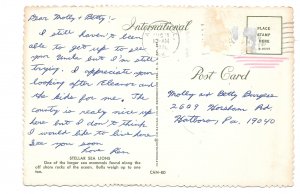 Dear Molly & Betty:-
I still haven't been
able to get up to see
your Uncle but I'm still
trying. I appreciate your
looking after Eleanor and
the kids for me. The
country is really nice up
here but I don't think
I would like to live here
See you soon
Love Ken
STELLAR SEA LIONS
One of the larger sea mammals found along the
off shore rocks of the ocean. Bulls weigh up to one
ton.
CAN-60
International
PLACE
STAMP
HERE
Post Card
Molly and Betty Burgess
2609 Horsham Rd.
Hatboro, Pa. 19040